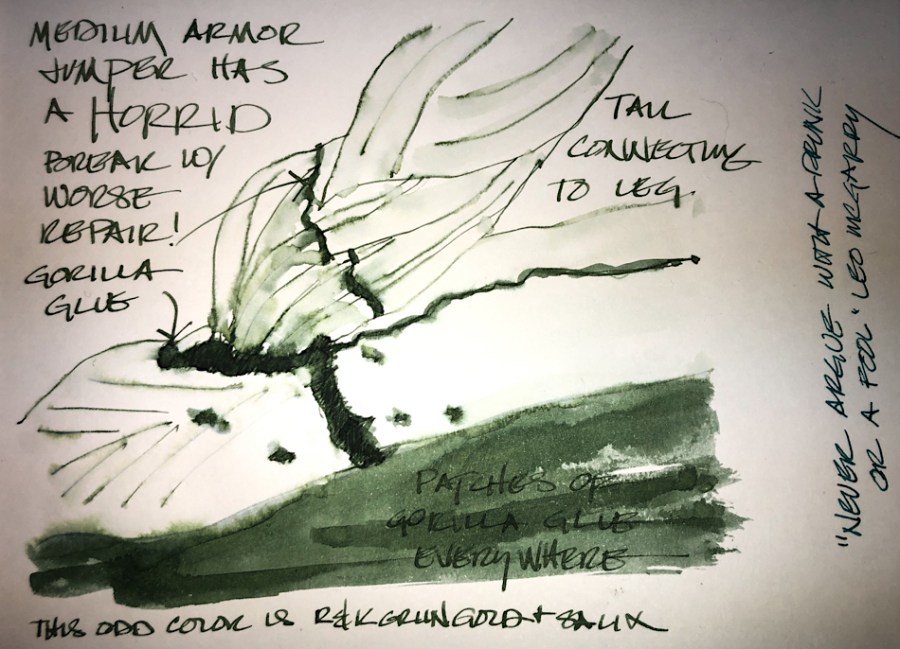 MEDIUM ARMOR
JUMPER HAS
A HORRID
BREAK W/
WORSE
REPAIR!
GORILLA
GLUE
TAIL
CONNECTING
TO LEG.
PATCHES OF
GORILLA GLUE
EVERYWHERE
THIS ODD COLOR IS R&K GRUNGOLD + SALIX
"NEVER ARGUE WITH A DRUNK
OR A FOOL" LEO MCGARRY